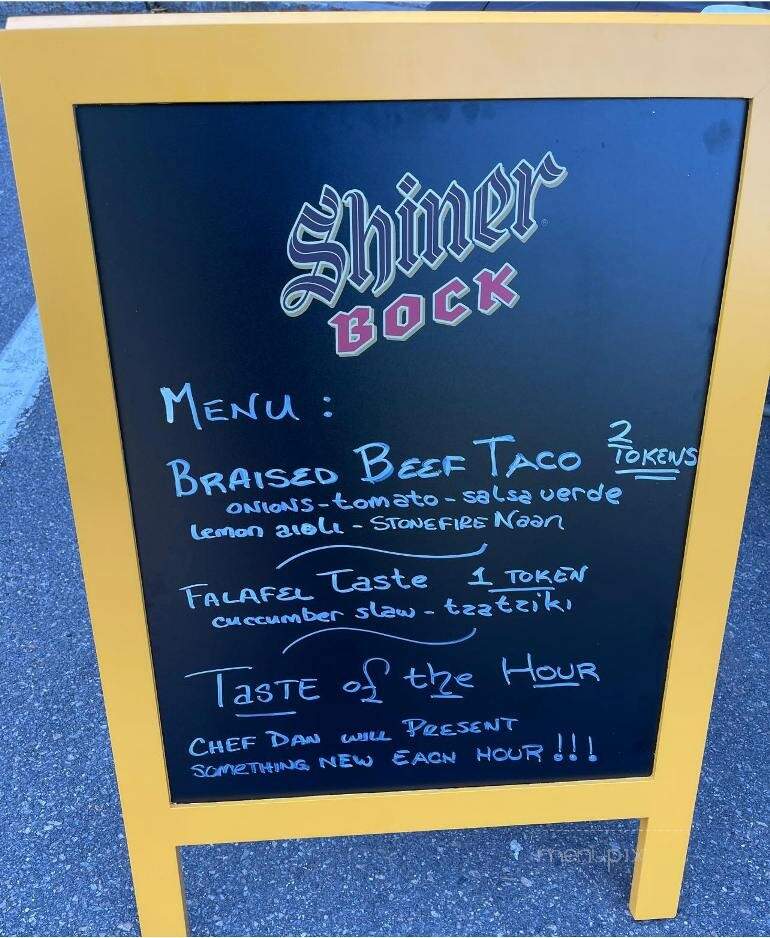 Shiner
BOCK
MENU :
BRAISED BEEF TACO 2 TOKENS
ONIONS - tomato - salsa verde
lemon aioli - STONEFIRE Naan
FALAFEL Taste 1 TOKEN
cuccumber slaw - tzatziki
TASTE of the HOUR
CHEF DAN WILL PRESENT
SOMETHING NEW EACH HOUR !!!
menupix